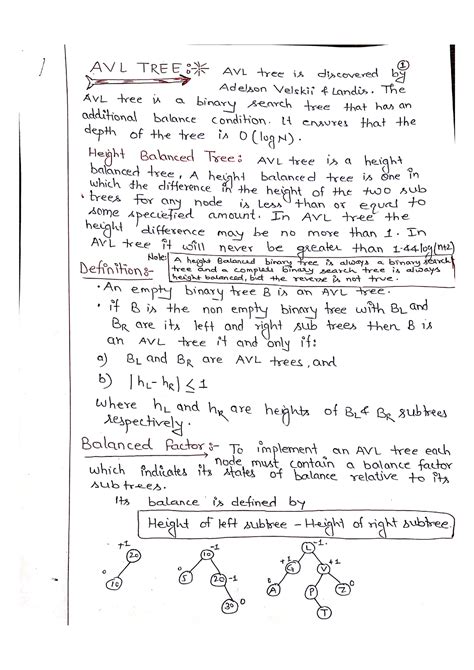 1
AVL TREE:-
AVL tree is discovered by
Adelson Velskii & Landis. The
AVL tree is a binary search tree that has an
additional balance condition. It ensures that the
depth of the tree is O(log N).
Height Balanced Tree: AVL tree is a height
balanced tree, A height balanced tree is one in
which the difference in the height of the two sub
trees for any node is less than or equal to
some speciefied amount. In AVL tree the
height difference may be no more than 1. In
AVL tree it will never be greater than 1.44log(n+2)
Note: A height Balanced binary tree is always a binary search
tree and a complete binary search tree is always
height balanced, but the reverse is not true.
Definitions:-
• An empty binary tree B is an AVL tree.
• if B is the non empty binary tree with BL and
BR are its left and right sub trees then B is
an AVL tree if and only if:
a) BL and BR are AVL trees, and
b) |hL - hR| ≤ 1
where hL and hR are heights of BL & BR subtrees
respectively.
Balanced Factor:- To implement an AVL tree each
node must contain a balance factor
which indicates its states of balance relative to its
subtrees.
Its balance is defined by
Height of left subtree - Height of right subtree.
+1 -1 L -1
20 10 +1 G V +1
0 10 0 5 20 -1 A 0 P Z 0
30 0 T 0